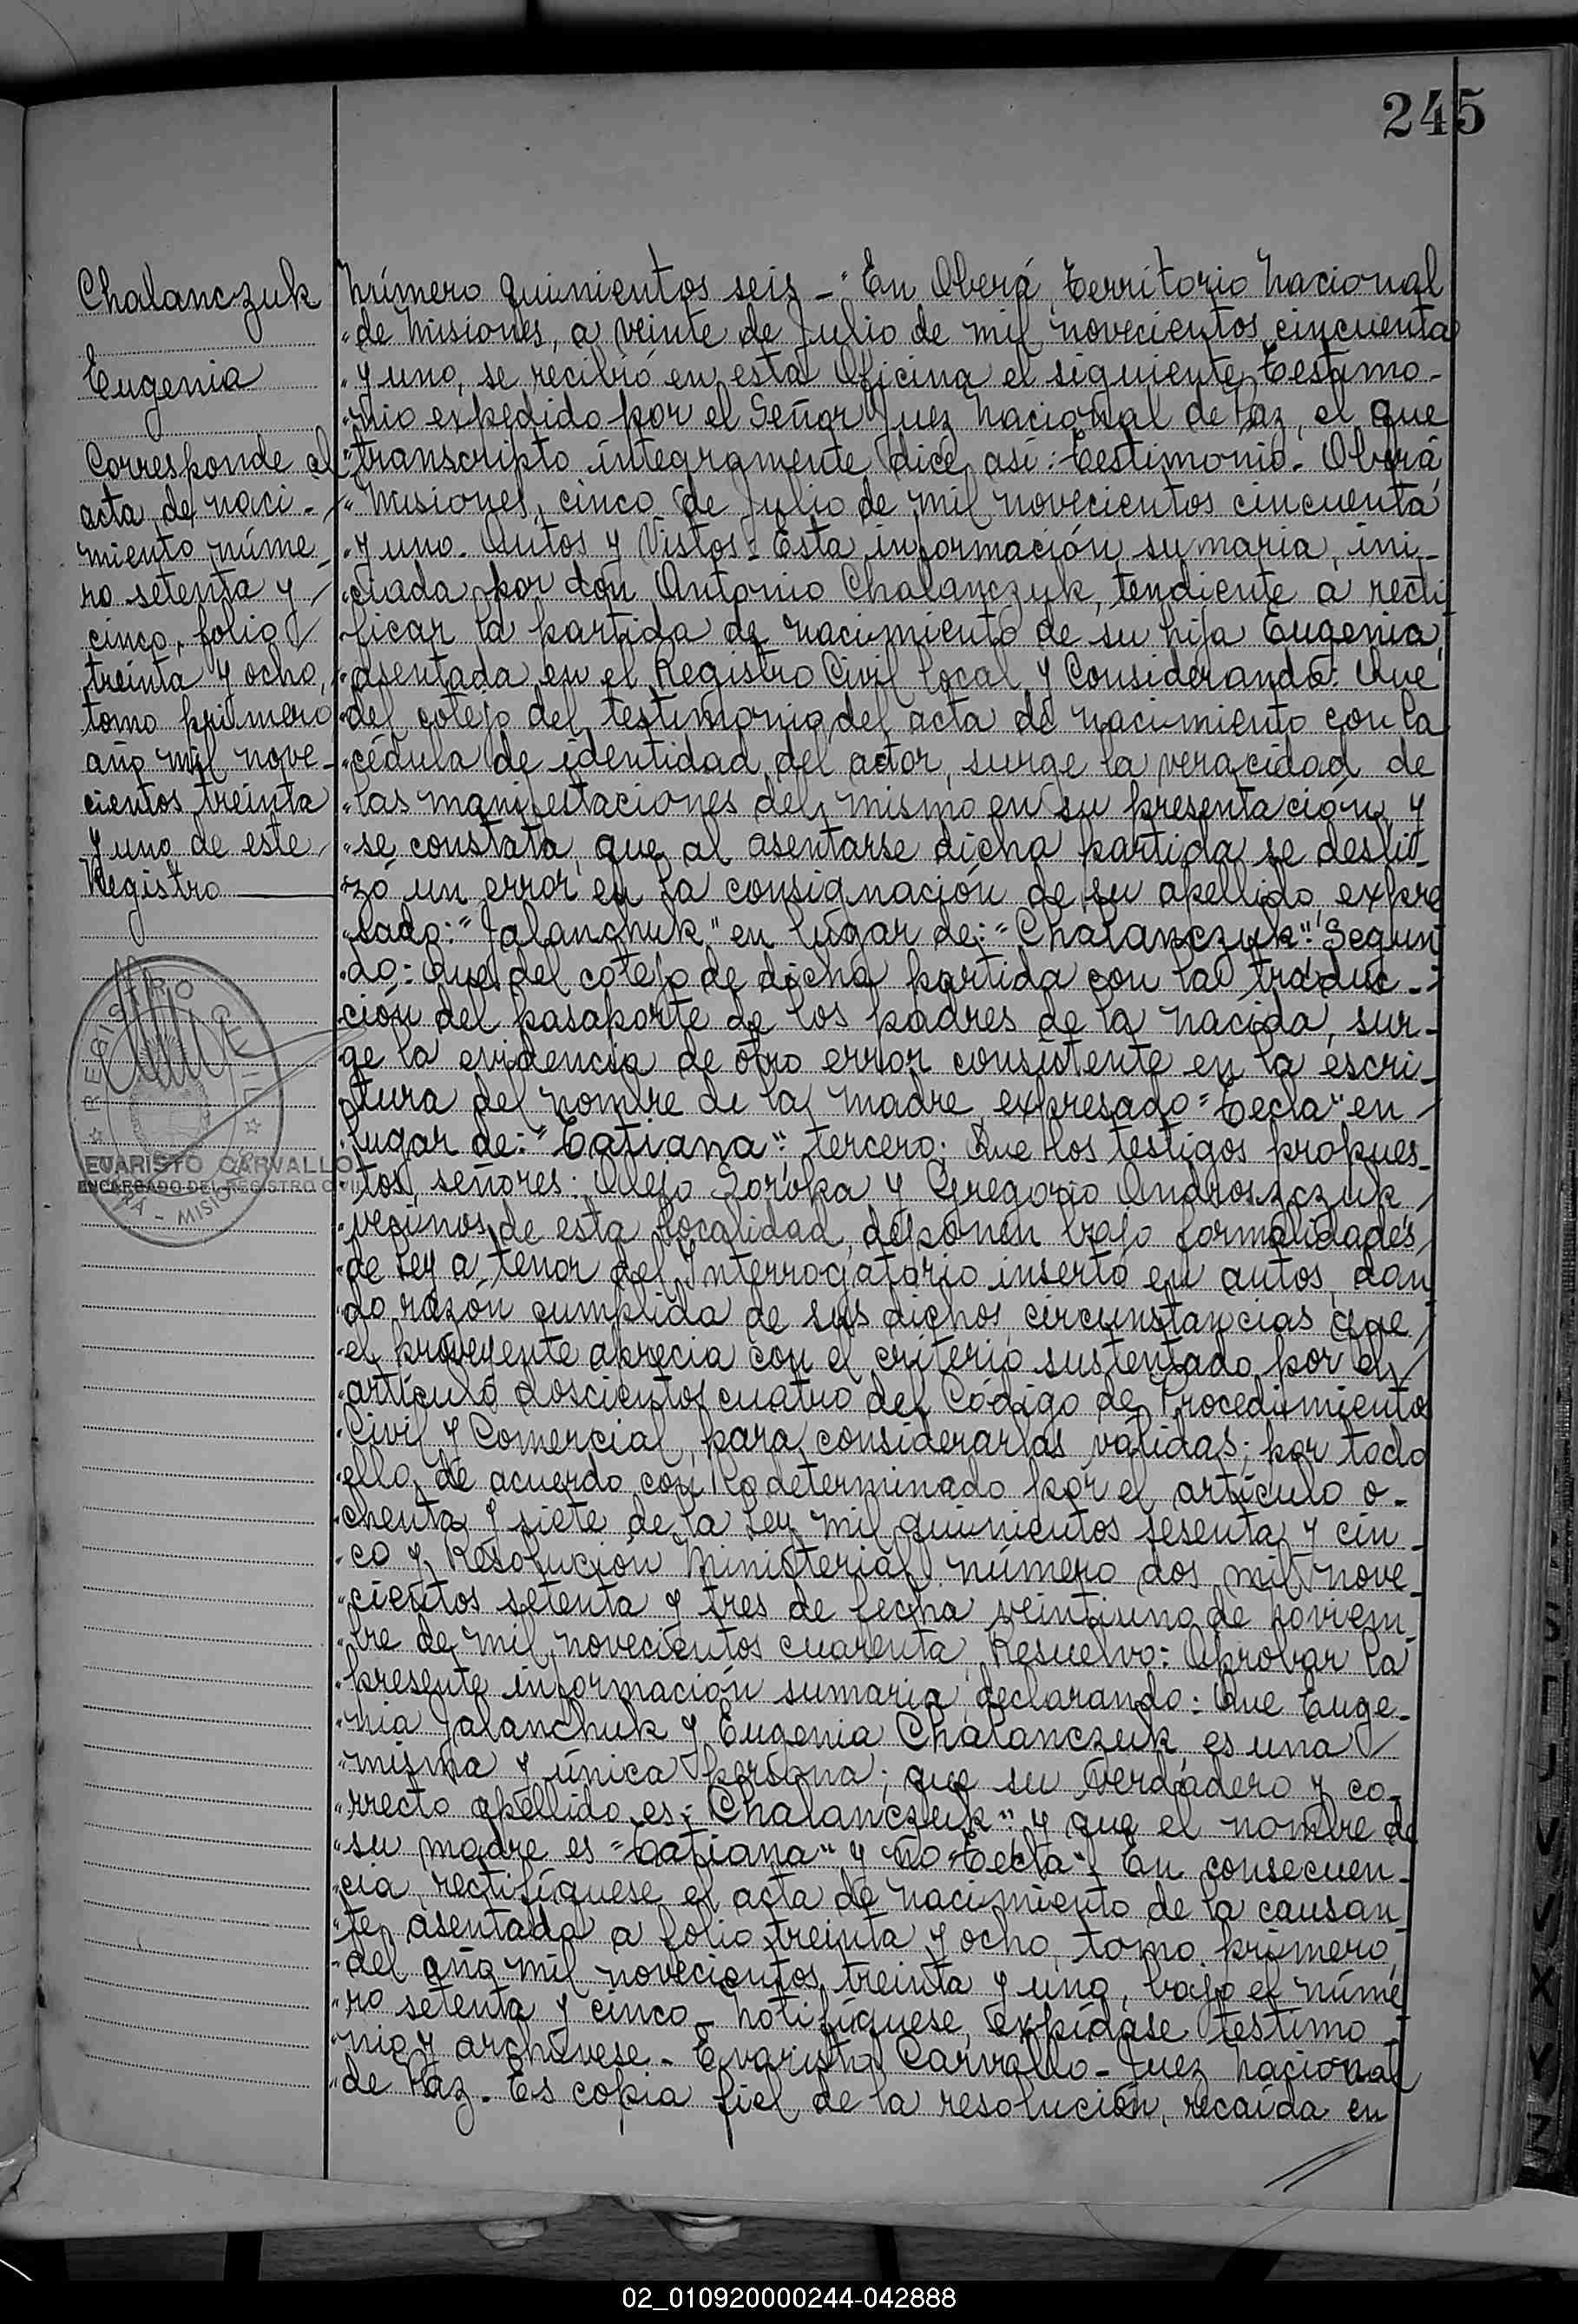 245
Chalanczuk
Eugenia
Corresponde al
acta de naci-
miento núme
ro setenta y
cinco, folio
treinta y ocho,
tomo primero
año mil nove-
cientos treinta
y uno de este
Registro
REGISTRO CIVIL
EVARISTO CARVALLO
ENCARGADO DEL REGISTRO CIVIL
MISIO
Número quinientos seis - "En Oberá, Territorio Nacional
"de Misiones, a veinte de Julio de mil novecientos cincuenta
"y uno, se recibió en esta Oficina el siguiente Testimo-
"nio expedido por el Señor Juez Nacional de Paz, el que
"transcripto íntegramente dice así: Testimonio. Oberá,
"Misiones, cinco de Julio de mil novecientos cincuenta
"y uno. Autos y Vistos: Esta información sumaria, ini-
"ciada por don Antonio Chalanczuk, tendiente a recti
"ficar la partida de nacimiento de su hija Eugenia,
"asentada en el Registro Civil local y Considerando: Que
"del cotejo del testimonio del acta de nacimiento con la
"cédula de identidad del actor, surge la veracidad de
"las manifestaciones del mismo en su presentación y
"se constata que al asentarse dicha partida se desli-
"zó un error en la consignación de su apellido expre
"sado: "Jalanchuk" en lugar de: "Chalanczuk". Segun
"do: Que del cotejo de dicha partida con la traduc-
"ción del pasaporte de los padres de la nacida, sur-
"ge la evidencia de otro error consistente en la escri-
"tura del nombre de la madre expresado "Tecla" en
"lugar de: "Tatiana"; tercero: Que los testigos propues-
"tos, señores: Alejo Zoroka y Gregorio Androszczuk
"vecinos de esta localidad, deponen bajo formalidades
"de ley a tenor del Interrogatorio inserto en autos, dan
"do razón cumplida de sus dichos, circunstancias que
"el proveyente aprecia con el criterio sustentado por el
"artículo doscientos cuatro del Código de Procedimiento
"Civil y Comercial, para considerarlas válidas; por todo
"ello, de acuerdo con lo determinado por el artículo o-
"chenta y siete de la Ley mil quinientos sesenta y cin-
"co y Resolución Ministerial número dos mil nove-
"cientos setenta y tres de fecha veintiuno de noviem-
"bre de mil novecientos cuarenta, Resuelvo: Aprobar la
"presente información sumaria, declarando: Que Euge-
"nia Jalanchuk y Eugenia Chalanczuk, es una
"misma y única persona; que su verdadero y co-
"rrecto apellido es: Chalanczuk" y que el nombre de
"su madre es "Tatiana" y no "Tecla". En consecuen-
"cia, rectifíquese el acta de nacimiento de la causan-
"te, asentada a folio treinta y ocho, tomo primero,
"del año mil novecientos treinta y uno, bajo el núme
"ro setenta y cinco - Notifíquese, expídase testimo-
"nio y archívese. - Evaristo Carvallo - Juez Nacional
"de Paz. - Es copia fiel de la resolución, recaída en
S
T
J
V
V
V
X
Y
Z
02_010920000244-042888